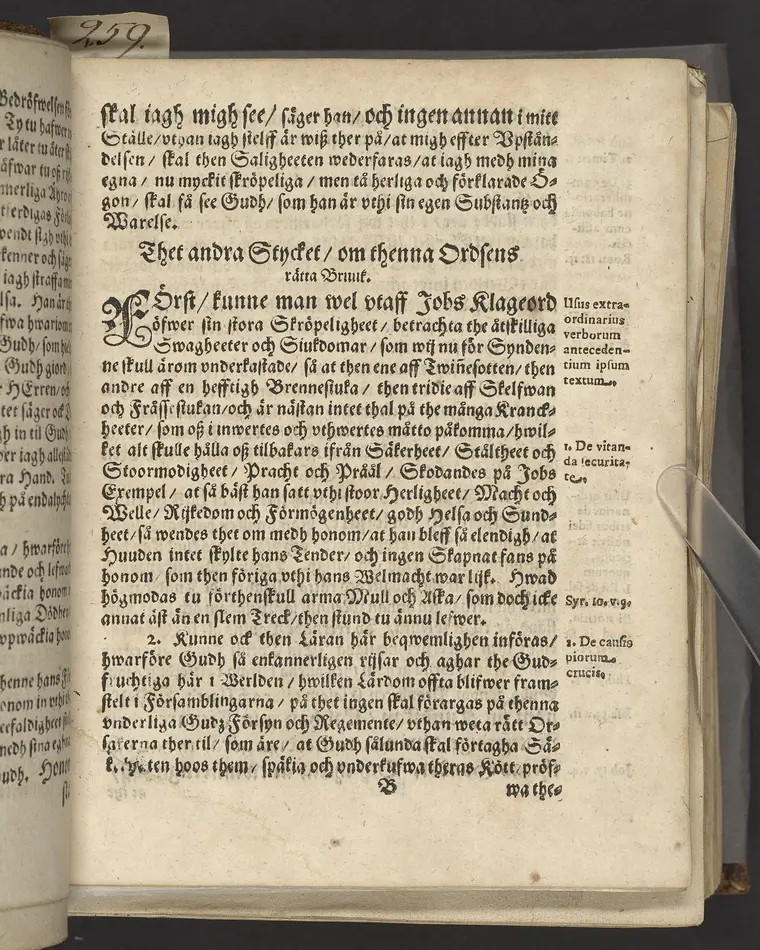 259.
skal iagh migh see/ säger han/ och ingen annan i mitt
Ställe/ vthan iagh sielff är wiß ther på/ at migh effter Vpstån-
delsen/ skal then Saligheeten wederfaras/ at iagh medh mina
egna/ nu myckit skröpeliga/ men tå herliga och förklarade Ö-
gon/ skal få see Gudh/ som han är vthi sin egen Substantz och
Warelse.
Thet andra Stycket/ om thenna Ordsens
rätta Bruuk.
FÖrst/ kunne man wel vtaff Jobs Klageord
öfwer sin stora Skröpeligheet/ betrachta the åtskilliga
Swagheeter och Siukdomar/ som wij nu för Synden-
ne skull ärom vnderkastade/ så at then ene aff Twinesotten/ then
andre aff en hefftigh Brennesiuka/ then tridie aff Skelfwan
och Frässesiukan/ och är nästan intet thal på the många Kranck-
heeter/ som oß i inwertes och vthwertes måtto påkomma/ hwil-
ket alt skulle hålla oß tilbakars ifrån Säkerheet/ Ståltheet och
Stoormodigheet/ Pracht och Prååĺ/ Skodandes på Jobs
Exempel/ at så bäst han satt vthi stoor Herligheet/ Macht och
Welle/ Rijkedom och Förmögenheet/ godh Helsa och Sund-
heet/ så wendes thet om medh honom/ at han bleff så elendigh/ at
Huuden intet skylte hans Tender/ och ingen Skapnat fans på
honom/ som then föriga vthi hans Welmacht war lijk. Hwad
högmodas tu förthenskull arma Mull och Aska/ som doch icke
annat äst än en slem Treck/ then stund tu ännu lefwer.
2. Kunne ock then Läran här beqwemlighen införas/
hwarföre Gudh så enkannerligen rijsar och aghar the Gud-
fruchtiga här i Werlden/ hwilken Lärdom offta blifwer fram-
stelt i Församblingarna/ på thet ingen skal förargas på thenna
vnderliga Gudz Försyn och Regemente/ vthan weta rätt Or-
sakerna ther til/ som äre/ at Gudh sålunda skal förtagha Sä-
ten hoos them/ späkia och vnderkufwa theras Kött/ pröf-
B wa the-
Usus extra-
ordinarius
verborum
anteceden-
tium ipsum
textum.
1. De vitan-
da securita-
te.
Syr. 10. v. 9.
2. De causis
piorum
crucis.